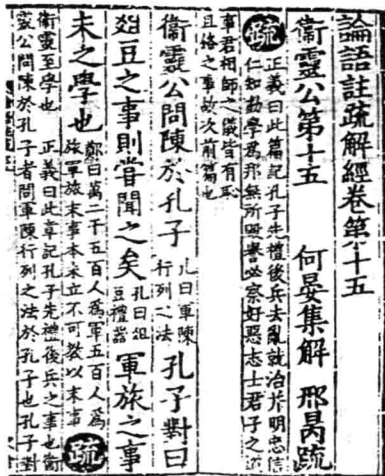 論語註疏解經卷第十五
衞靈公第十五 何晏集解 邢昺疏
疏 正義曰此篇記孔子先禮後兵去亂就治并明忠信
仁知勸學爲邦無所毀譽必察好惡志士君子之道
事君相師之儀皆有恥
且格之事故次前篇也
衞靈公問陳於孔子 孔曰軍陳
行列之法 孔子對曰
俎豆之事則嘗聞之矣 孔曰俎
豆禮器 軍旅之事
未之學也 鄭曰萬二千五百人爲軍五百人爲
旅軍旅末事本未立不可教以末事 疏
衞靈至學也 正義曰此章記孔子先禮後兵之事也衞
靈公問陳於孔子者問軍陳行列之法於孔子也孔子對